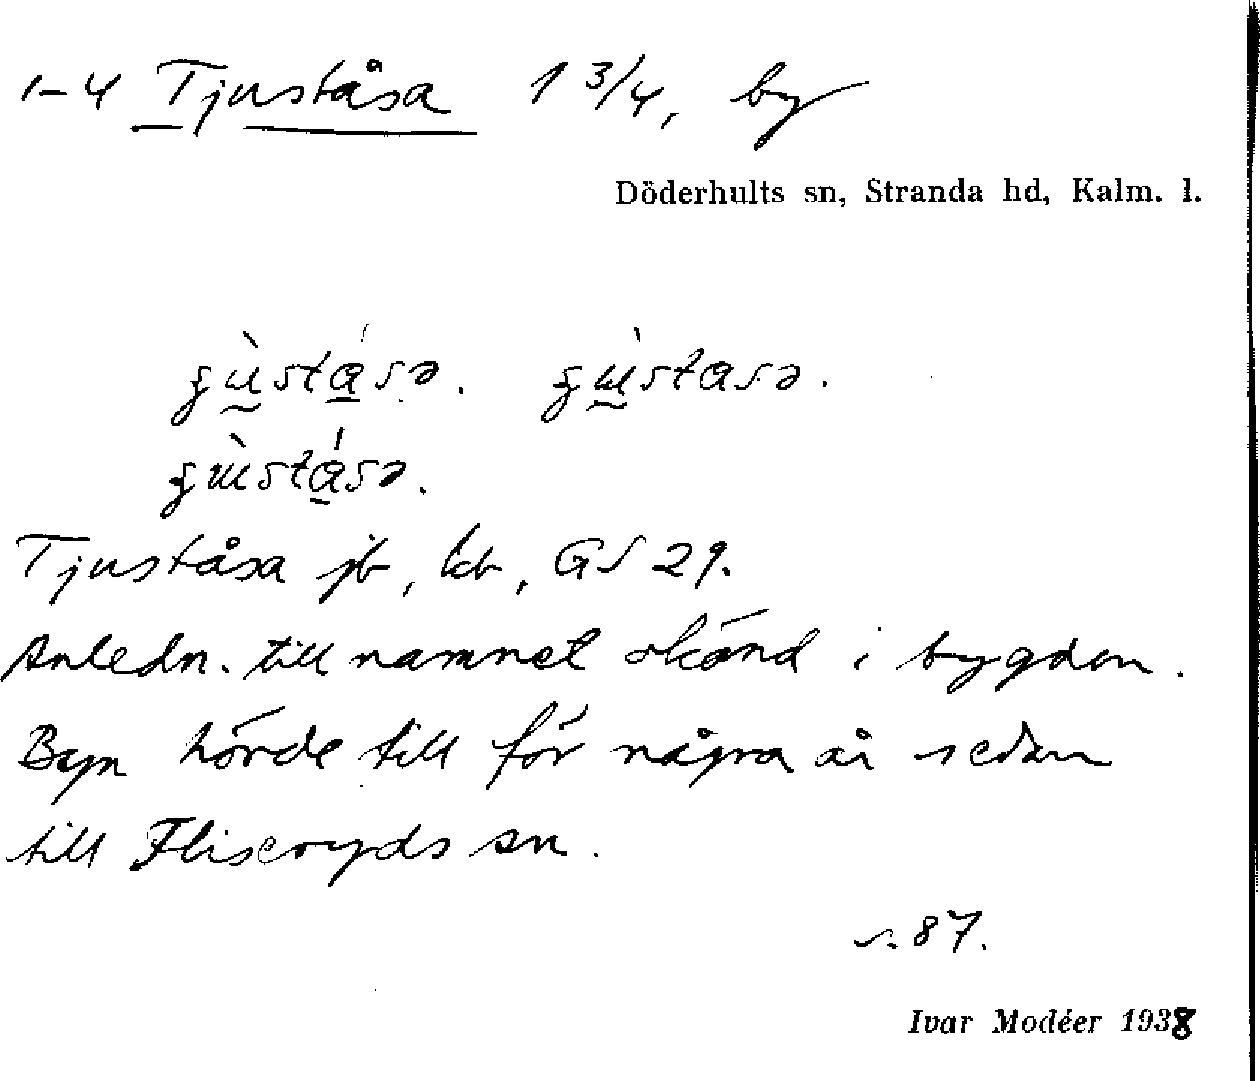 1-4 Tjuståsa 1 3/4, by
Döderhults sn, Stranda hd, Kalm. l.
Tjuståsa jb, kb, GS 29.
Anledn. till namnet okänd i bygden.
Byn hörde till för några år sedan
till Fliseryds sn.
s. 87.
Ivar Modéer 1938